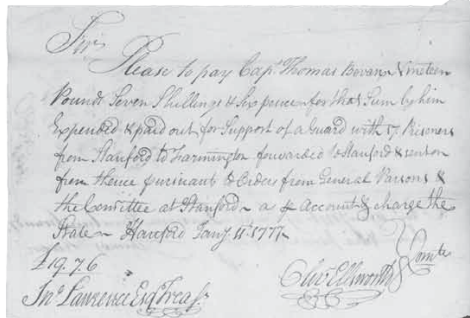 Sir,
Please to pay Capt Thomas Bevans Nineteen
Pounds Seven Shillings & Six pence for that Sum by him
Expended & paid out for Support of a Guard with 17 Prisoners
from Stanford to Farmington forwarded to Hartford &
from thence pursuant to Orders from General Parsons &
the Committee at Stanford a & Account & charge the
State Hartford Jany 11th 1777
£19.7.6
Jno Lawrence Esqr Treasr
Olivr Ellsworth Comte